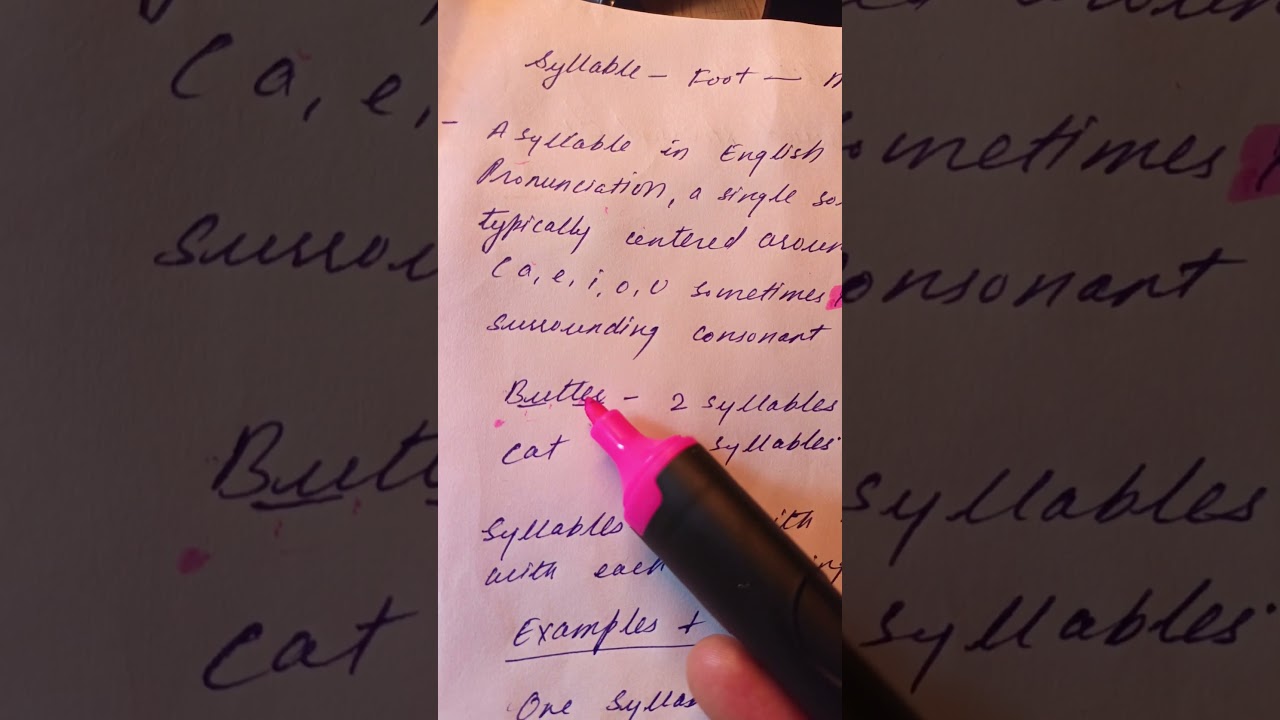 Syllable - Foot -
A syllable in English
Pronunciation, a single
typically centered
(a, e, i, o, u sometimes
surrounding consonant
Butter - 2 syllables
cat syllables.
Syllables with
with each
Examples +
One